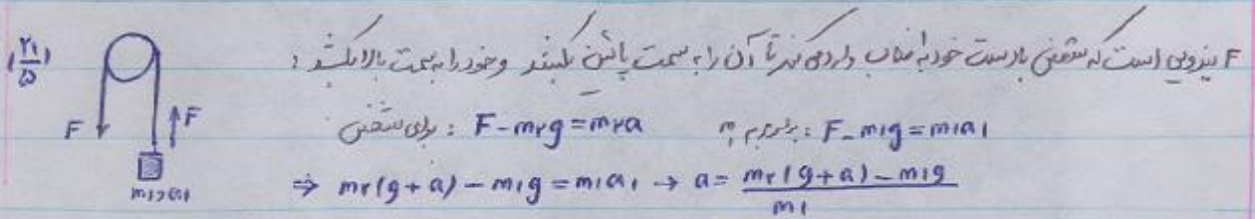 (۲۱/۵)
F نیرویی است که شخص با دست خود به طناب وارد می کند تا آن را به سمت پائین بکشد و خود را به سمت بالا بکشد :
F
F
m1, a1
برای شخص : F - m۲g = m۲a برای جرم m1 : F - m1g = m1a1
⇒ m۲(g+a) - m1g = m1a1 → a = (m۲(g+a) - m1g) / m1